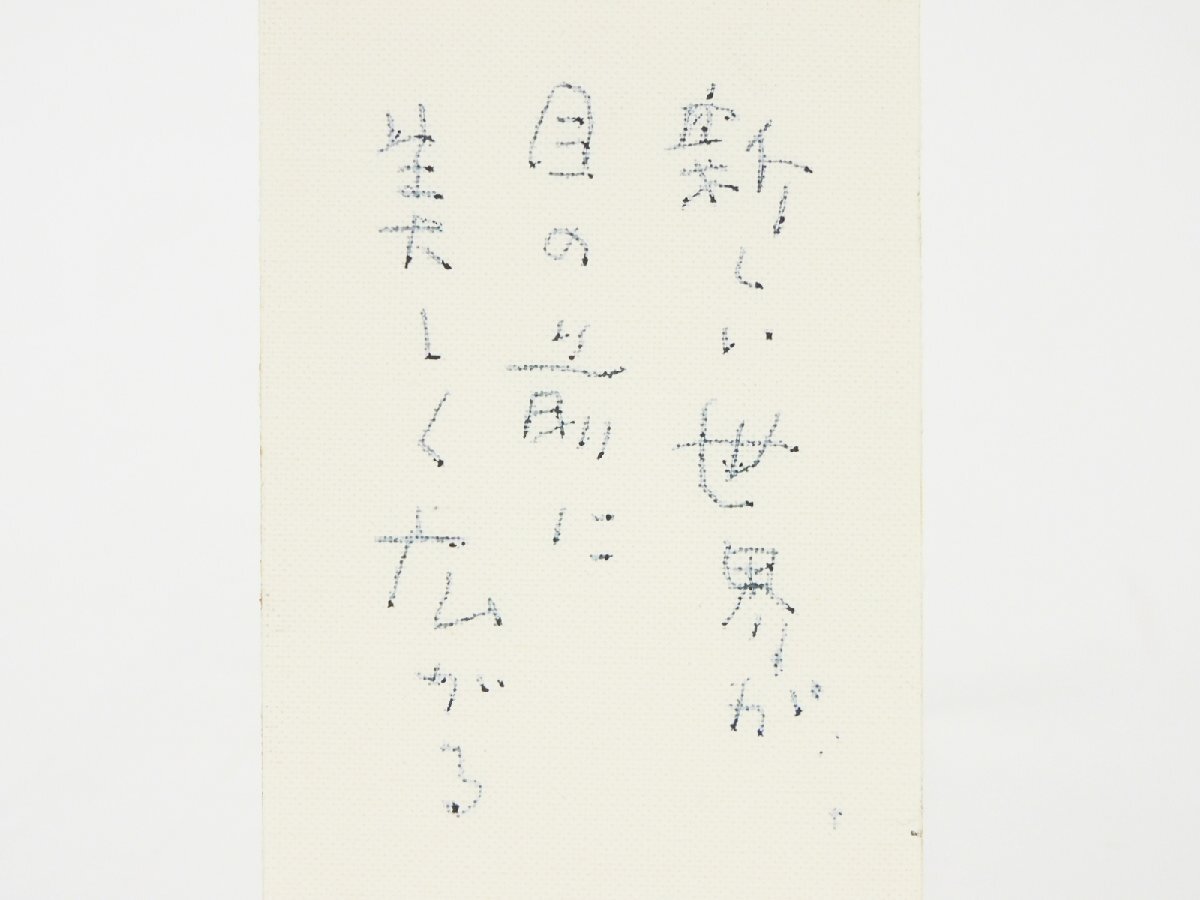 新しい世界が
目の前に
美しく広がる